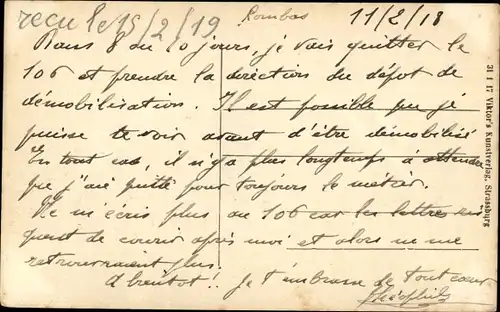 reçu le 15/2/19
Rombas 11/2/18
Dans 8 ou 10 jours, je vais quitter le
106 et prendre la direction du dépot de
démobilisation. Il est possible que je
puisse te voir avant d'être démobilisé
En tout cas, il n'y a plus longtemps à attendre
que j'aie quitté pour toujours le métier.
Ne m'écris plus au 106 car les lettres ris-
quent de courir après moi et alors ne me
retrouveraient plus.
A bientôt!! Je t'embrasse de tout coeur
Théophile
31 1 17 Viktor's Kunstverlag, Strassburg